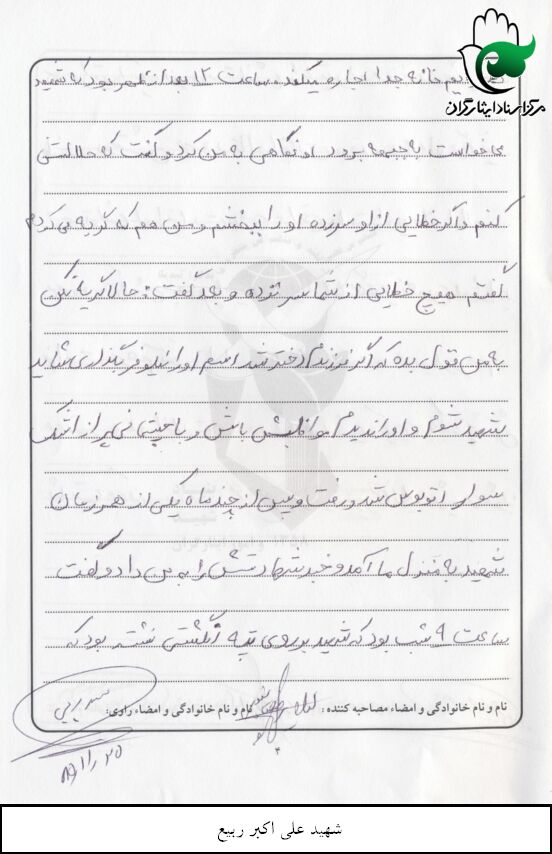 مرکز اسناد ایثارگران
خانه جدا اجاره میکند. ساعت ۱۲ بعد از ظهر بود که شهید
می خواست به جبهه برود او نگاهی به من کرد و گفت که حلالش
کنم و اگر خطایی از او سرزده او را ببخشم و من هم که گریه می کردم
گفتم هیچ خطایی از شما سر نزده و بعد گفت: حالا گریه نکن
به من قول بده که اگر فرزندم دختر شد اسم او را نیلوفر بگذاری شاید
شهید شوم و او را ندیدم مواظبش باش و با چشمانی پر از اشک
سوار اتوبوس شد و رفت و پس از چند ماه یکی از همرزمان
شهید به منزل ما آمد و خبر شهادتش را به من داد و گفت
ساعت ۹ شب بود که شهید بر روی تپه نشسته بود که
نام و نام خانوادگی و امضاء مصاحبه کننده: نام و نام خانوادگی و امضاء راوی:
۴
شهید علی اکبر ربیع